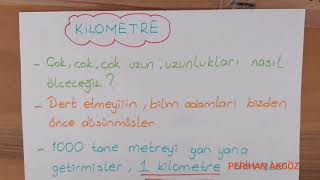 KİLOMETRE
- Çok, çok, çok uzun, uzunlukları nasıl
ölçeceğiz?
- Dert etmeyiin, bilim adamları bizden
önce düşünmüşler
- 1000 tane metreyi yan yana
getirmişler, 1 kilometre
PERİHAN AKGÖZ